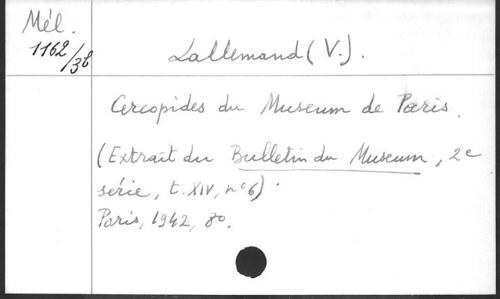 Mél.
1162/36
Lallemand (V.).
Cercopides du Museum de Paris.
(Extrait du Bulletin du Museum, 2e
série, t. XIV, n°6).
Paris, 1942, 8o.